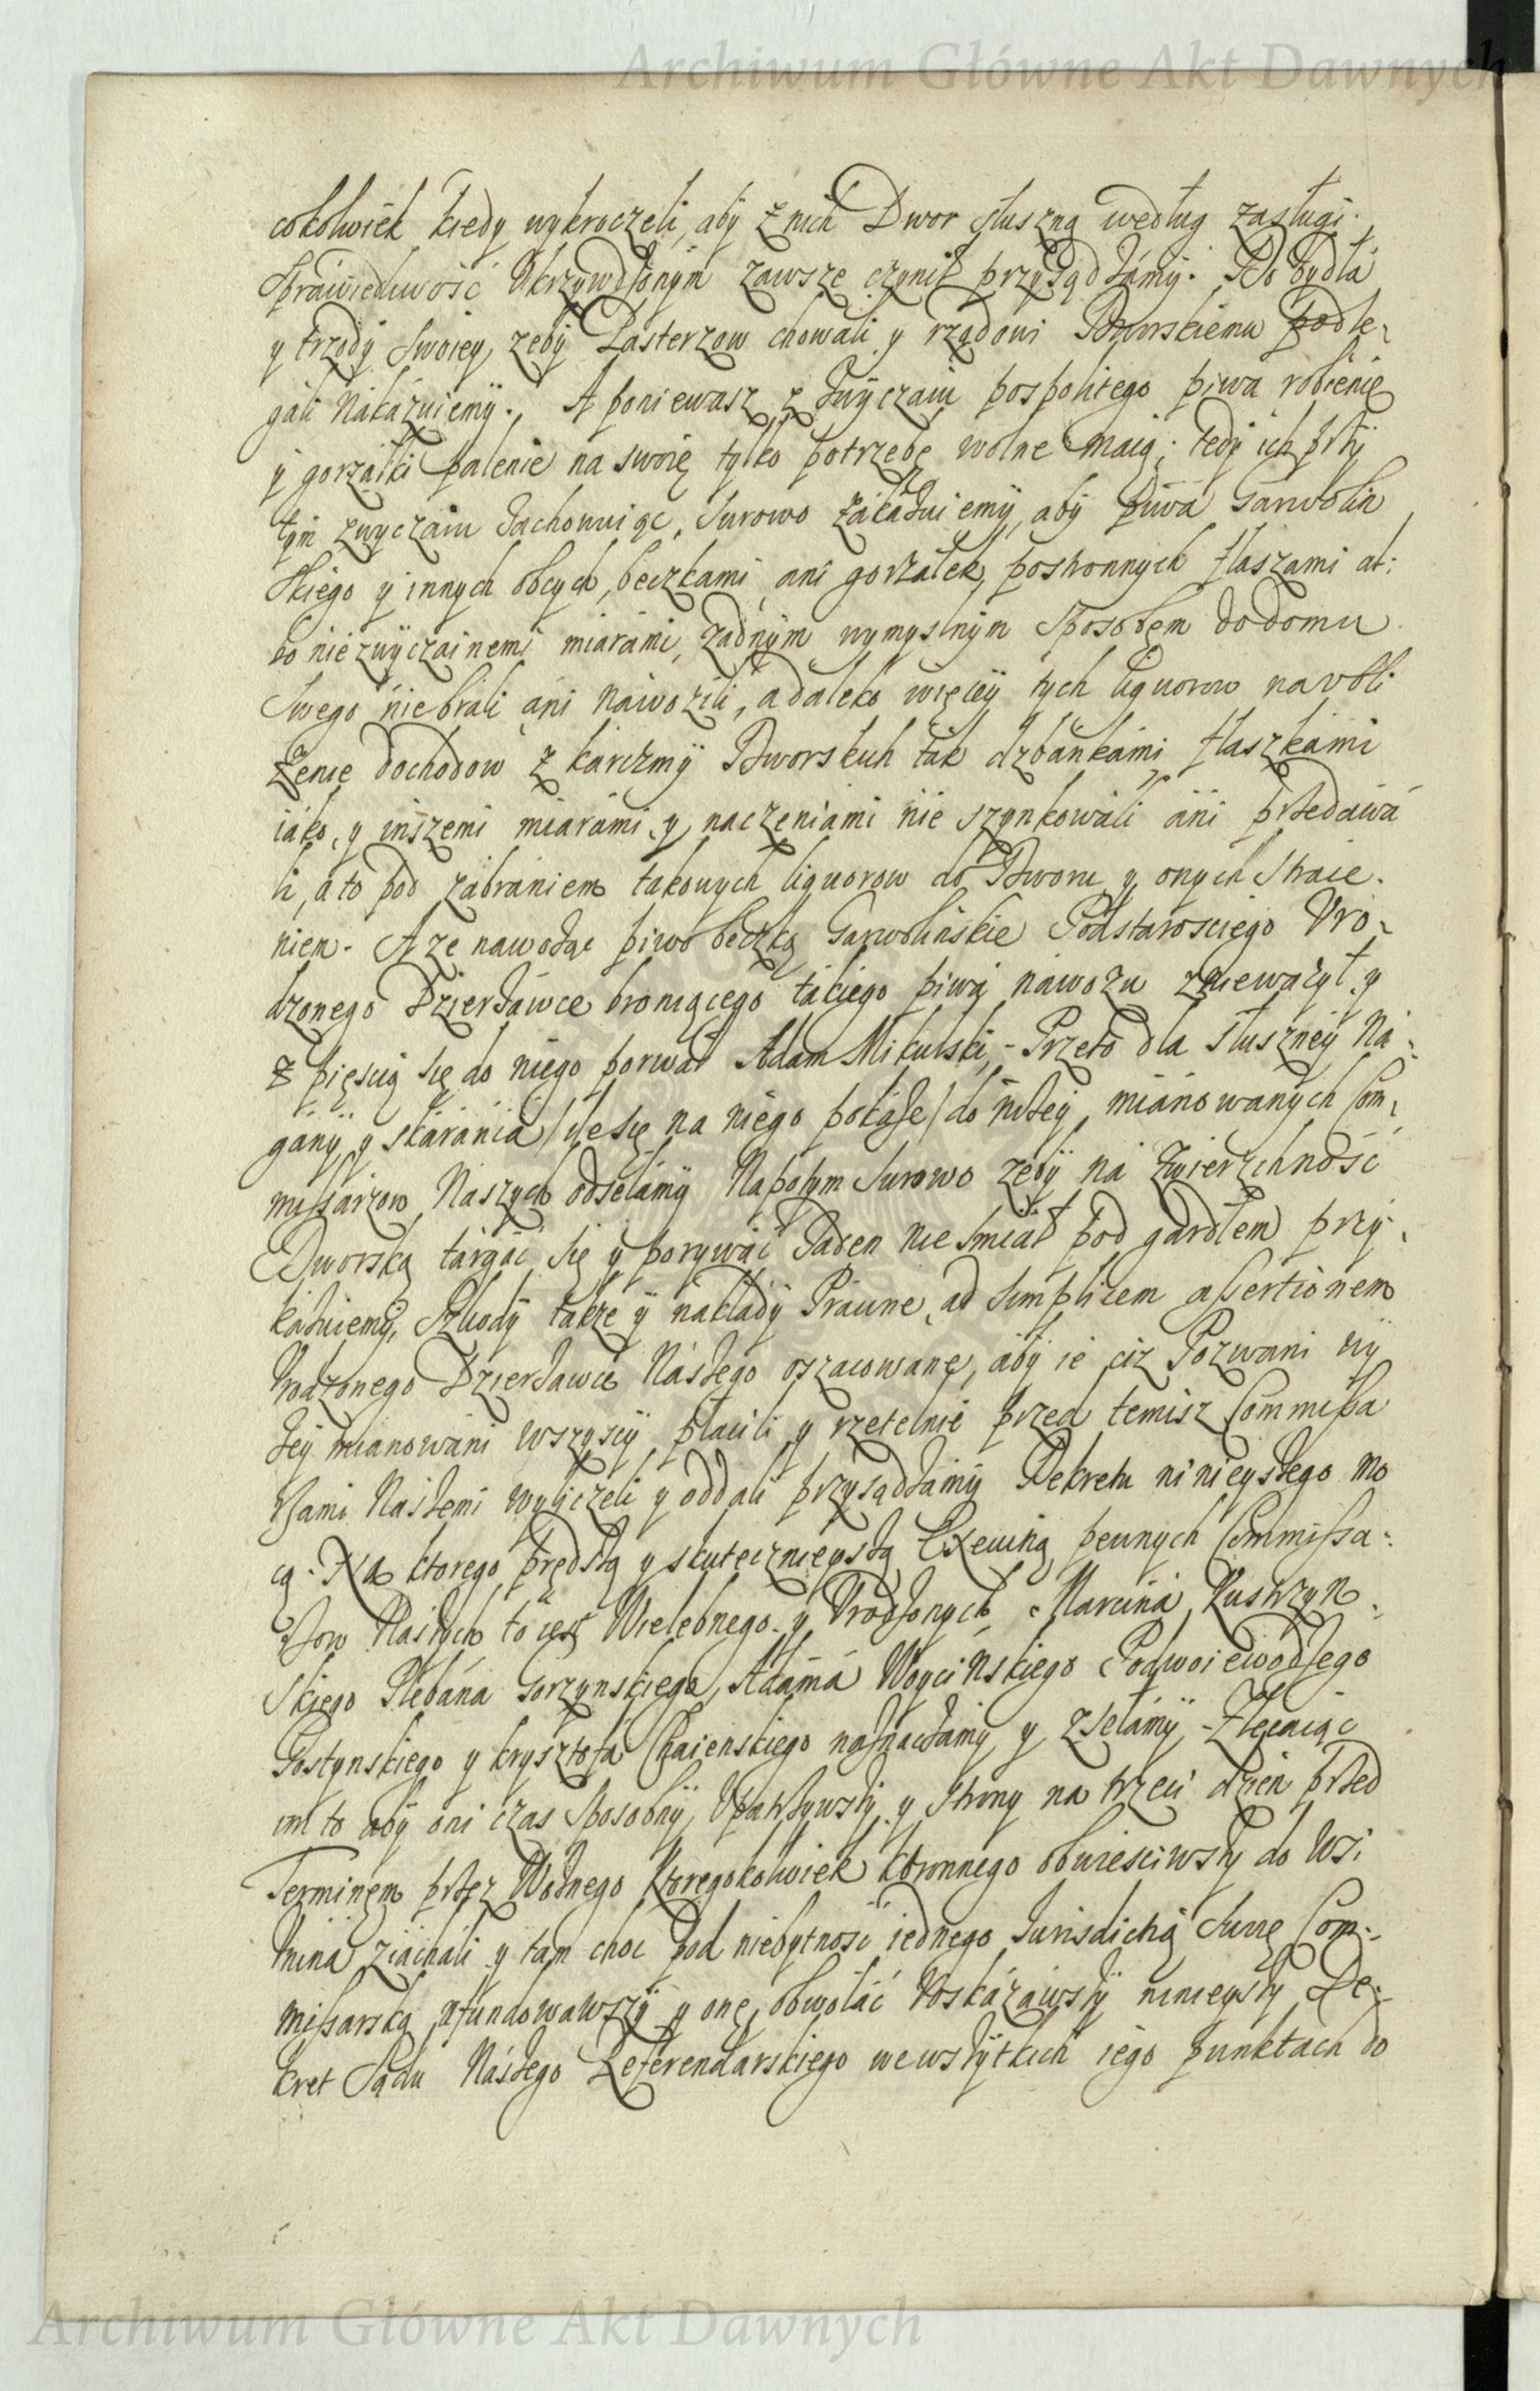 Archiwum Główne Akt Dawnych
cokolwiek kiedy wykroczeli, aby z nich Dwor słuszną według zasługi
Sprawiedliwość Ukrzywdzonym zawsze czynił przysądzamy. Do bydła
y trzody Swoiey, zeby Pasterzow chowali y rządowi Dworskiemu podle-
gali Nakazuiemy. A poniewasz z zwyczaiu pospolitego piwa robienie
y gorzałki palenie na swoię tylko potrzebę wolne maią; tedy ich przy
tym zwyczaiu zachowuiąc, Surowo zakazuiemy, aby piwa Garwolin
skiego y innych obcych, beczkami, ani gorzałek, postronnych flaszami al-
bo niezwyczainemi miarami, zadnym wymyslnym Sposobem do domu
Swego nie brali ani nawozili, a daleko więcey tych liquorow na vbli
zenie dochodow z karczmy Dworskich tak dzbankami, flaszkami
iako, y inszemi miarami y naczeniami nie szynkowali ani przedawa
li, a to pod zabraniem takowych liquorow do Dworu y onych Strace-
niem. A ze nawożąc piwo beczką Garwolinskie Podstarosciego Vro-
dzonego Dzierzawce broniącego takiego piwa nawozu zniewazył y
z pięscią się do niego porwał Adam Mikulski, - Przeto dla słuszney Na-
gany y skarania / ieslię na niego pokaże / do niżey mianowanych Com-
missarzow Naszych odselamy Napotym Surowo zeby na Zwierzchność
Dworską targać się y porywać żaden nie smiał pod gardłem przy-
kazuiemy, Szkody także y nakłady Prawne, ad simplicem assertionem
Vrodzonego Dzierzawce Naszego oszacowane, aby ie ciz Pozwani wy
żey mianowani wszyscy płacili y rzetelnie przed temisz Commissa
rzami Naszemi wyliczeli y oddali przysądzamy Dekretu ninieyszego mo
cą. Na ktorego prędszą y skutecznieyszą Exekucią pewnych Commissa-
rzow Naszych to iest Wielebnego y Vrodzonych Marcina Kustrzyn-
skiego Plebana Gorzynskiego, Adama Woycinskiego Podwoiewodzego
Gostynskiego y krysztofa Chaienskiego naznaczamy y zsełamy - Zlecaiąc
im to aby oni czas Sposobny Vpatrzywszy y Strony na trzeci dzien przed
Terminem przez Woznego ktoregokolwiek koronnego obwiesciwszy do Wsi
Mina ziachali y tam choc pod niebytnosc iednego Jurisdictią Swoię Com-
missarską vfundowawszy y onę obwołać Roskazawszy ninieyszy De-
kret Sądu Naszego Referendarskiego we wszytkich iego punktach do
Archiwum Główne Akt Dawnych